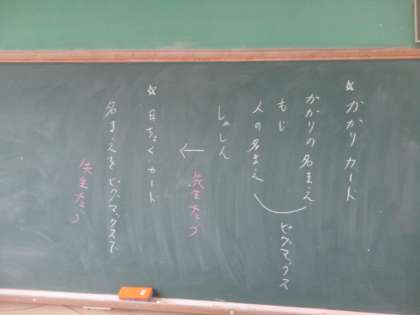 ☆かかりカード
かかりの名まえ
もじ
人の名まえ
ビグマックス
しゃしん
←
先生たち
☆日ちょくカード
名まえをビグマックスで
先生たち